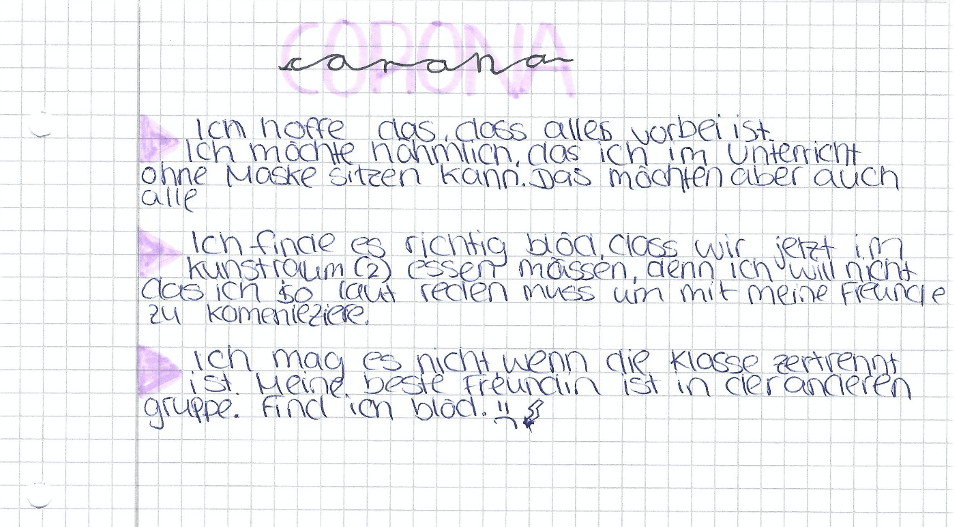 CORONA
corona
Ich hoffe das, dass alles vorbei ist.
Ich möchte nähmlich, das ich im Unterricht
ohne Maske sitzen kann. Das möchten aber auch
alle
Ich finde es richtig blöd, dass wir jetzt im
Kunstraum (2) essen müssen, denn ich will nicht
das ich so laut reden muss um mit meine Freunde
zu komenieziere.
Ich mag es nicht, wenn die Klasse zertrennt
ist. Meine beste Freundin ist in der anderen
gruppe. Find ich blöd.